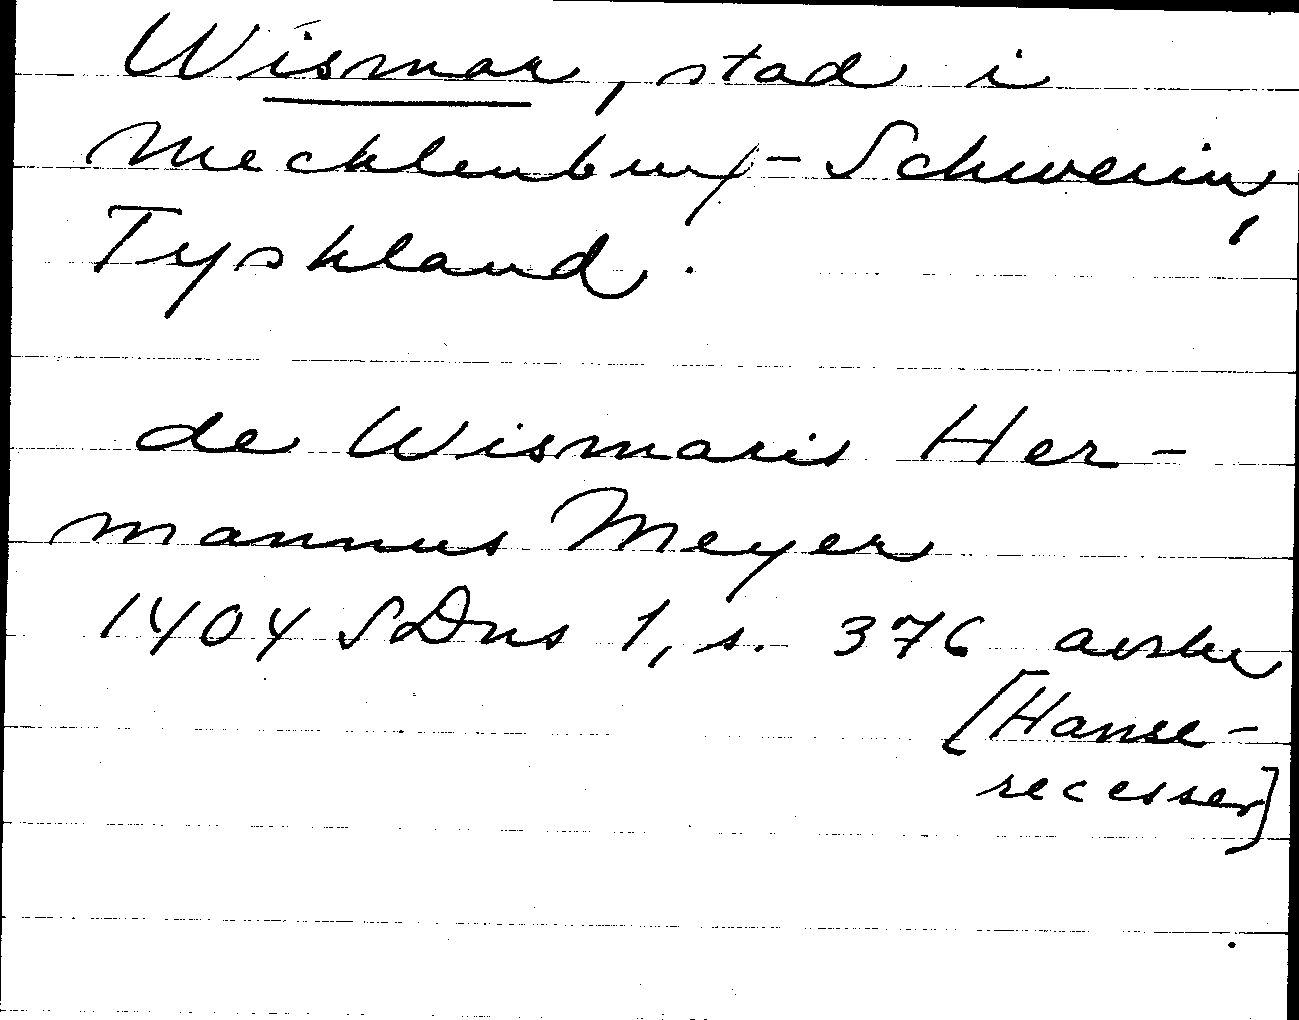 Wismar, stad i
Mecklenburg-Schwerin,
Tyskland.
de Wismaris Her-
mannus Meyer
1404 SDns 1, s. 376 avskr
[Hanse-
recesser]